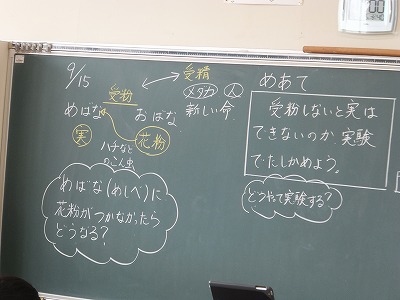 9/15
受粉
めばな
おばな
実
花粉
ハチなど
のこん虫
めばな(めしべ)に
花粉がつかなかったら
どうなる?
受精
メダカ 人
新しい命
めあて
受粉しないと実は
できないのか、実験
でたしかめよう。
どうやって実験する?